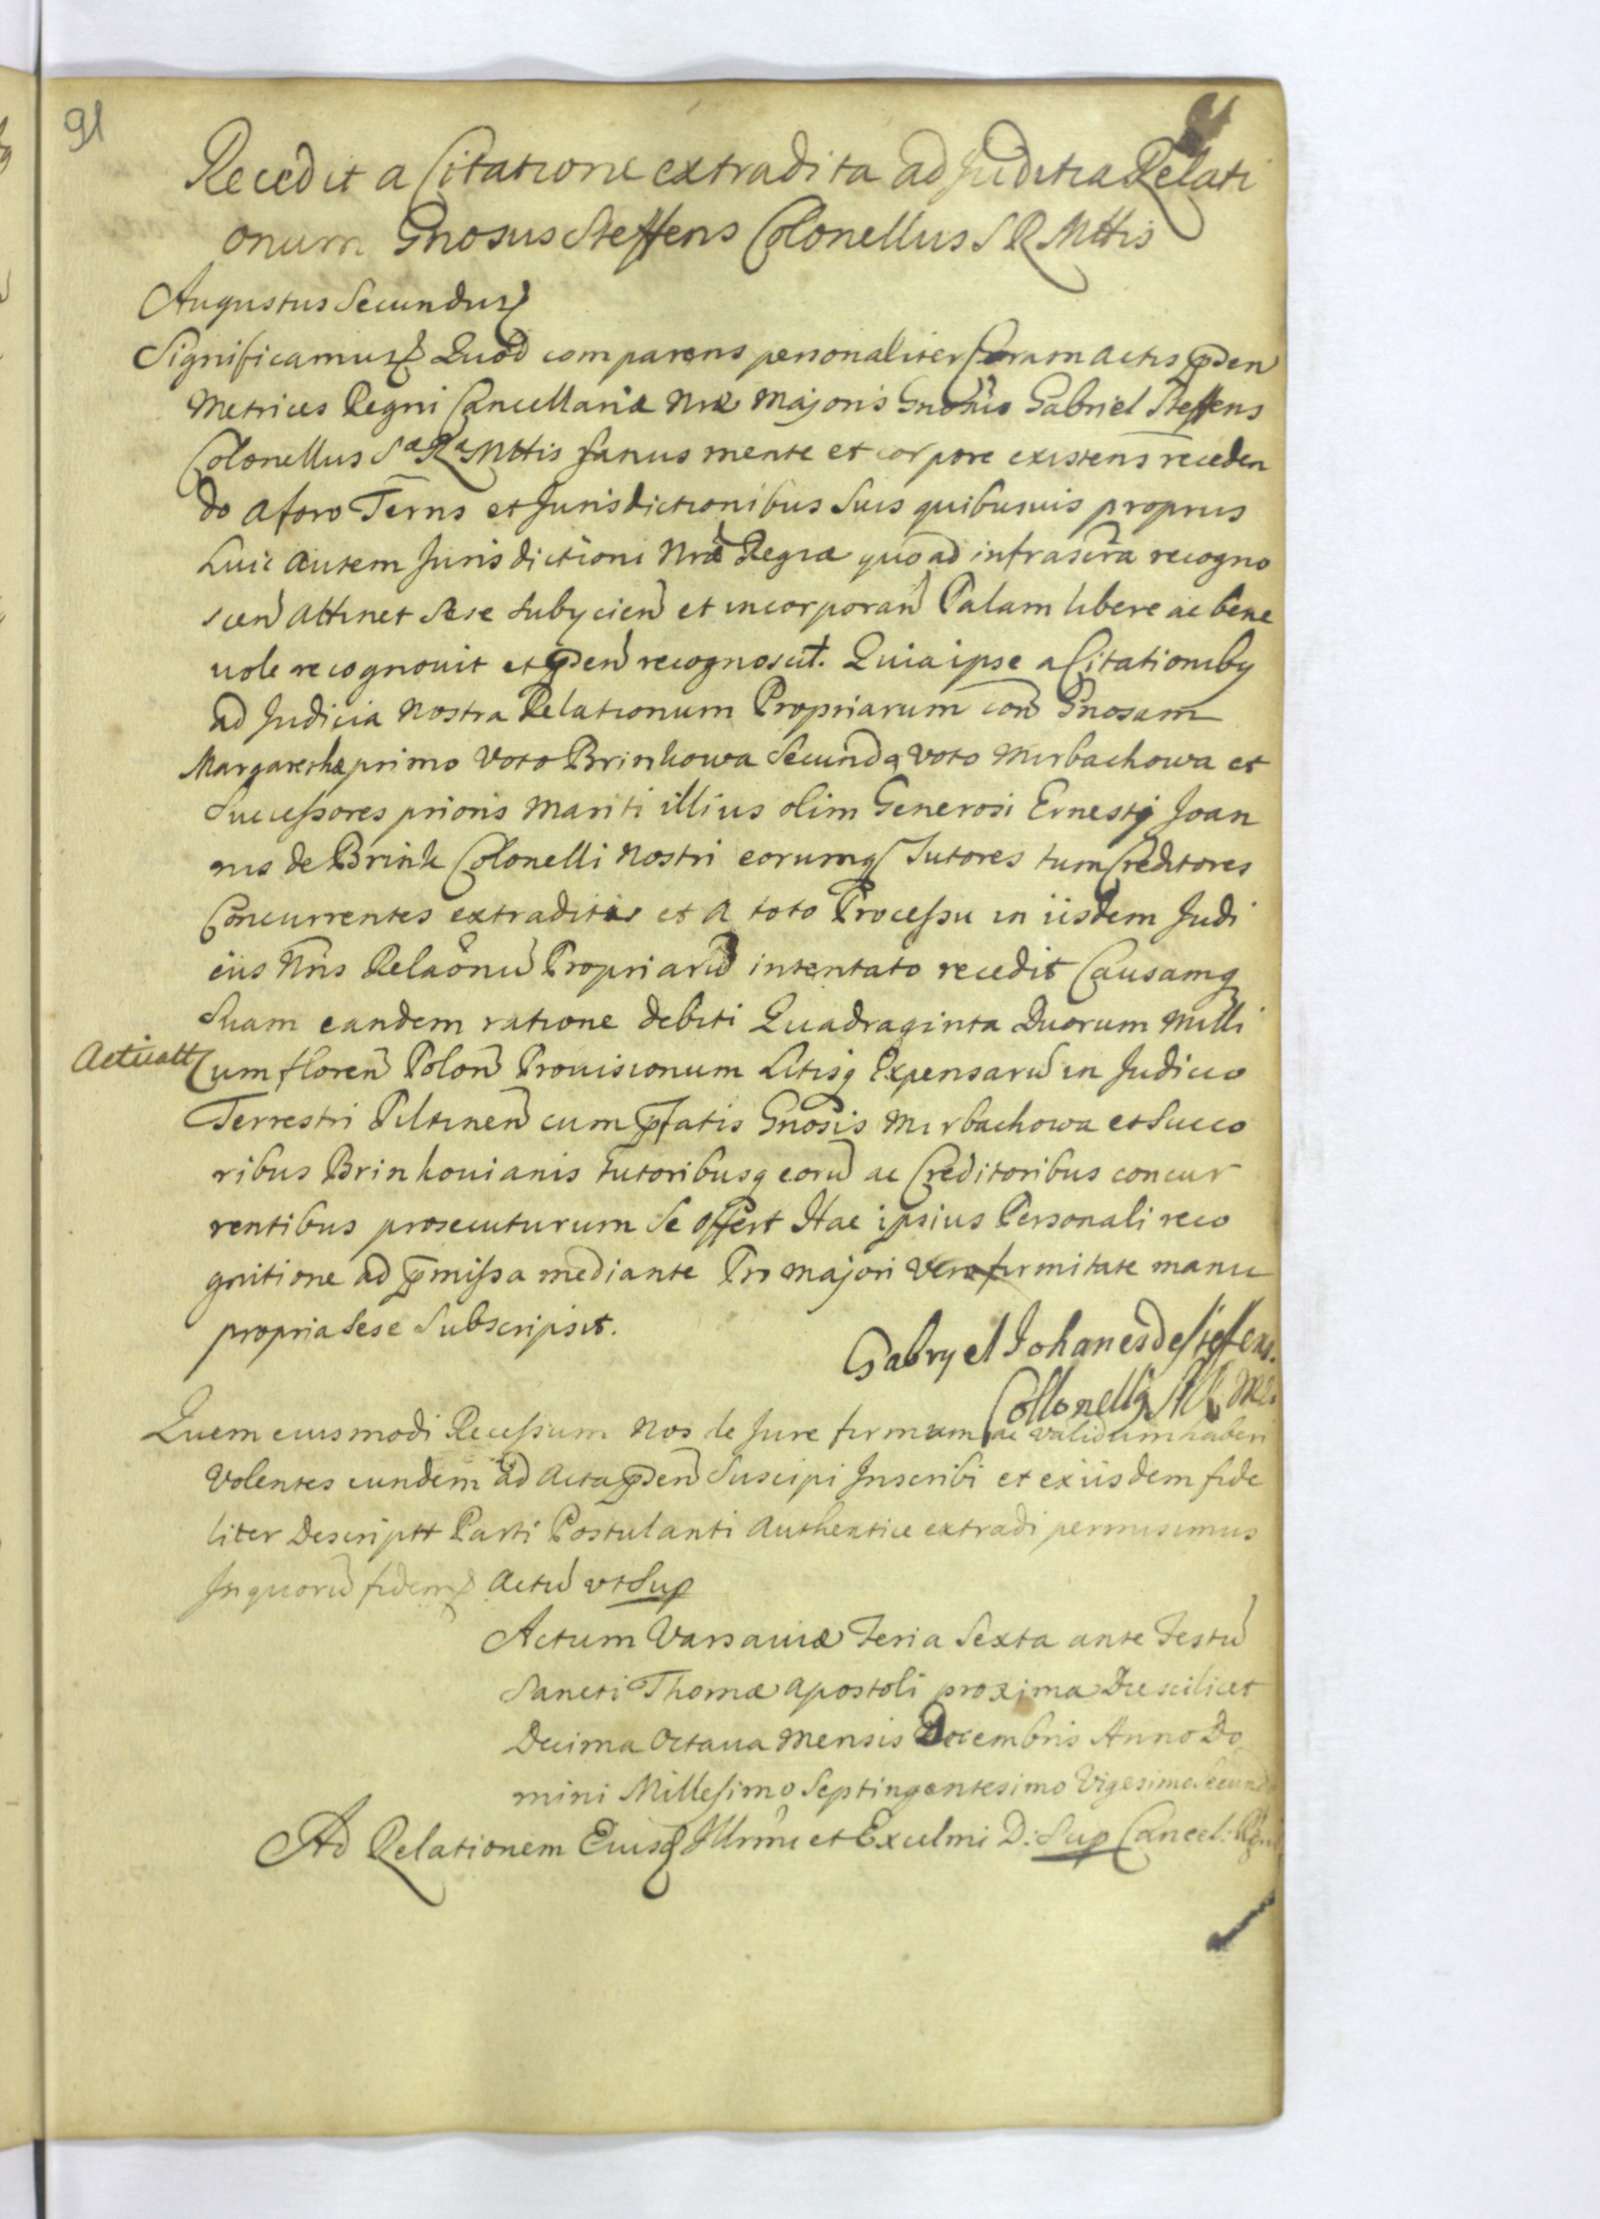 91
Recedit a Citatione extradita ad Juditia Relati
onum Gnosus Steffens Colonellus S R Mttis
Augustus Secundus
Significamus Quod comparens personaliter Coram actis pnden
Metrices Regni Cancellariæ Nræ Majoris Gnosus Gabriel Steffens
Colonellus Sæ Ræ Mttis sanus mente et corpore existens receden
do a foro Terris et Jurisdictionibus suis quibusuis proprus
Luic autem Jurisdictioni Nræ Regiæ quoad infrascra recogno
scen attinet sese subycien et incorporan Palam libere ac bene
uole recognouit et pnden recognoscit. Quia ipse a Citationiby
ad Judicia nostra Relationum Propriarum con Gnosam
Margarethæ primo Voto Brinkowa Secundo voto Mirbachowa et
Successores prioris Mariti illius olim Generosi Ernesti Joan
nis de Brink Colonelli nostri eorumq Tutores tum Creditores
Concurrentes extraditis et a toto Processu in iisdem Judi
ciis Nris Relaonu Propriaru intentato recedit Causamq
Suam eandem ratione debiti Quadraginta Duorum Milli
Acticatt
Cum floren Polon Prouisionum Litisq Expensaru in Judicio
Terrestri Piltinen cum pfatis Gnosis Mirbachowa et Succo
ribus Brinkouianis tutoribusq eoru ac Creditoribus concur
rentibus prosecuturum se offert Hac ipsius Personali reco
gnitione ad pmissa mediante Pro majori vero firmitate manu
propria sese Subscripsit.
Gabryel Johanes de Steffens.
Collonellg
Quem eiusmodi Recessum nos de Jure firmum ac validum haberi
Volentes eundem ad Acta pnden Suscipi Inscribi et ex iisdem fide
liter Descriptt Parti Postulanti Authentice extradi permisimus
In quoru fidem Actu vt Sup
Actum Varsauiæ Feria Sexta ante Festu
Sancti Thomæ Apostoli proxima Die scilicet
Decima Octaua Mensis Decembris Anno Do
mini Millesimo Septingentesimo Vigesimo Secundo
Ad Relationem Eiusd Illrmi et Excelmi D: Sup Cancel: Regni